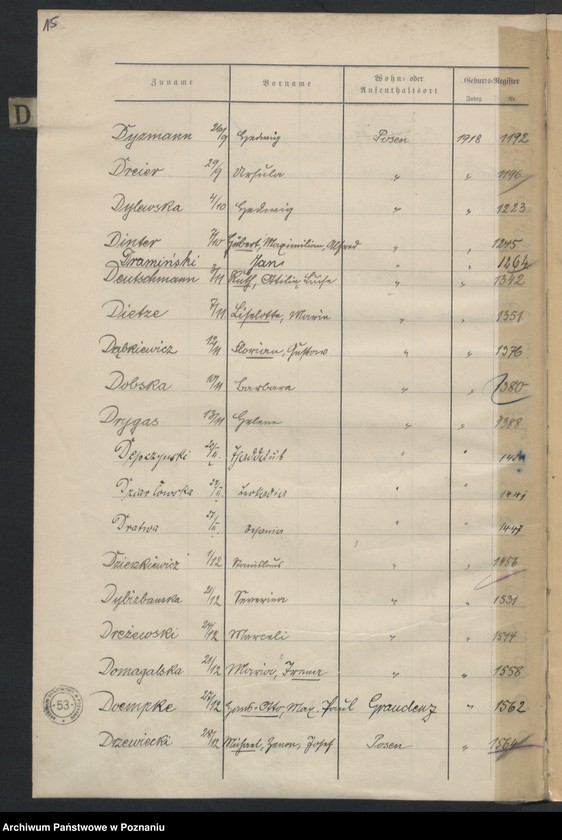 15
D
Zuname Vorname Wohn- oder Aufenthaltsort Geburts-Register
Jahrg. Nr.
Dyzmann 26/9 Hedwig Posen 1918 1192
Dreier 29/9 Ursula " " 1196
Dylewska 4/10 Hedwig " " 1223
Dinter /10 Hubert, Maximilian, Alfred " " 1245
Dramiński Jan " " 1264
Deutschmann /11 Ruth, Ottilie, Luise " " 1342
Dietze 7/11 Liselotte, Maria " " 1351
Dąbkiewicz 12/11 Florian, Gustav " " 1376
Dobska 10/11 Barbara " " 1380
Drygas 13/11 Helene " " 1388
Depczynski Thaddäus " "
Leokadia " " 1441
Dratwa Stefania " " 1447
Dzieszkiewicz 1/12 Stanislaus " " 1456
Dylizbanska 21/12 Severina " " 1531
Dreżewski 24/12 Marceli " " 1544
Domagalska 21/12 Maria, Irena " " 1558
Doempke 27/12 Hans-Otto, Max, Paul Graudenz " 1562
Drzewiecki 28/12 Michael, Zenon, Josef Posen " 1564
53
Archiwum Państwowe w Poznaniu